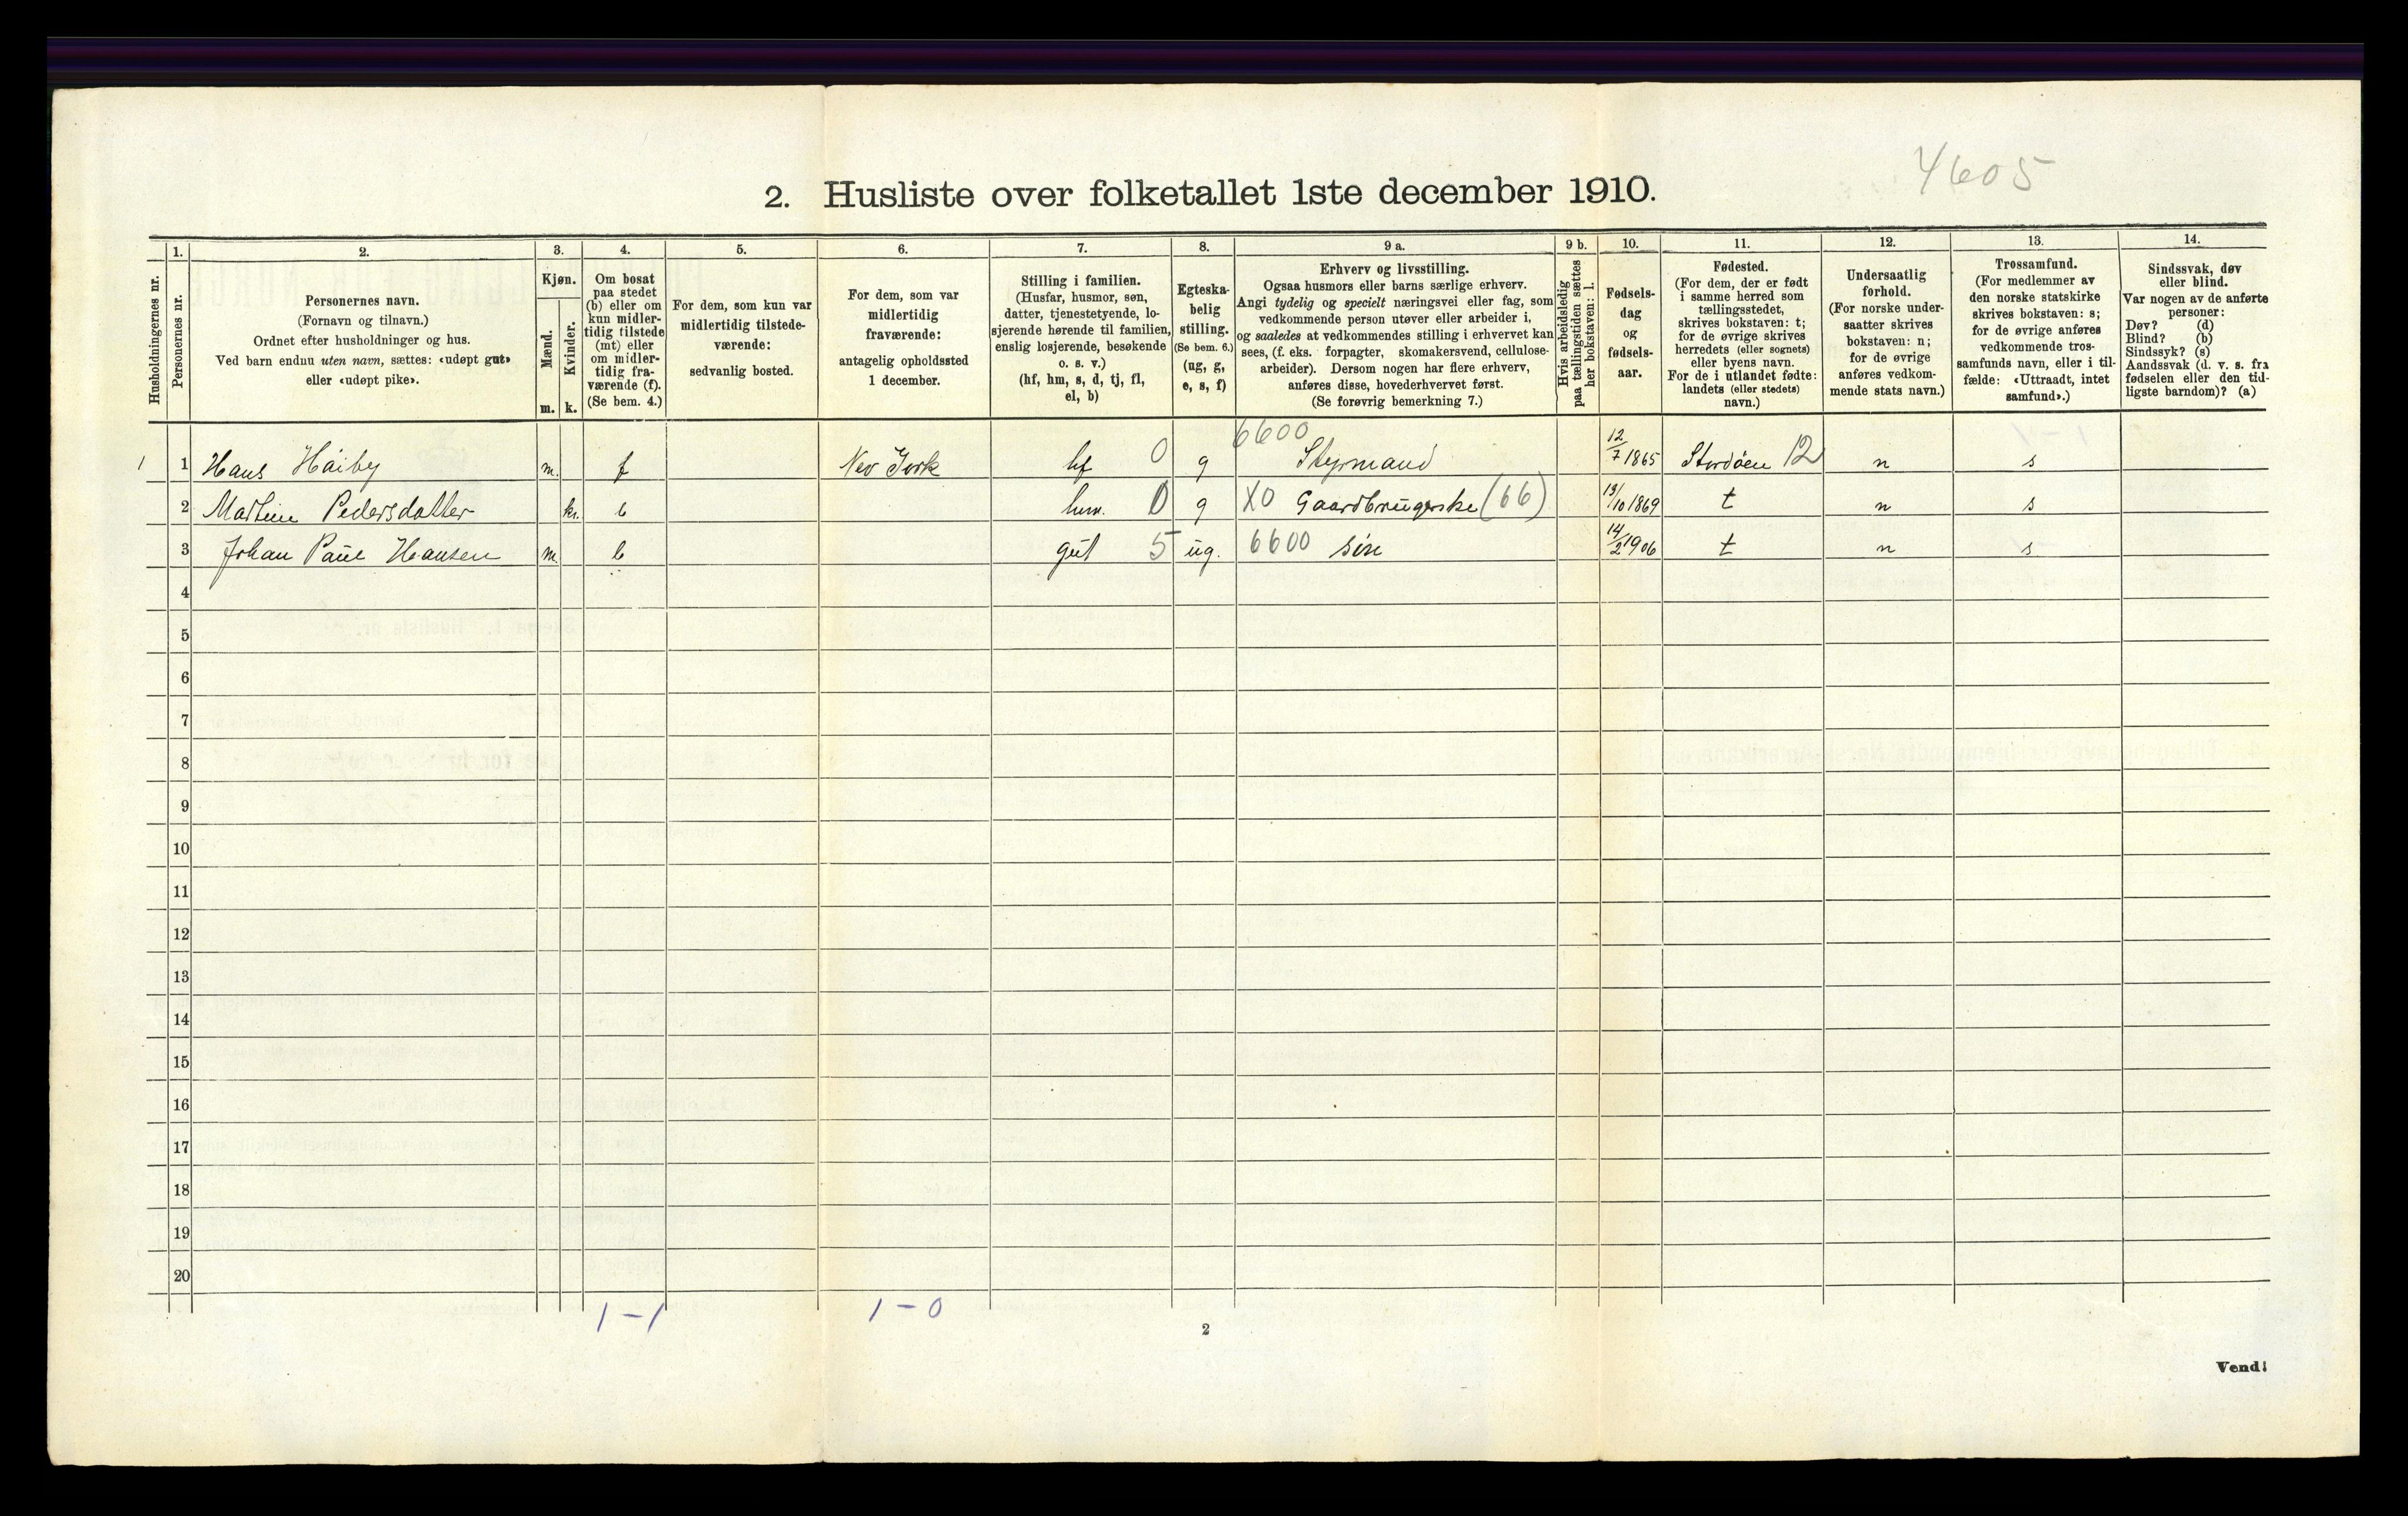 4605
2. Husliste over folketallet 1ste december 1910.
Husholdningernes nr.
1.
Personernes nr.
2.
Personernes navn.
(Fornavn og tilnavn.)
Ordnet efter husholdninger og hus.
Ved barn endnu uten navn, sættes: «udøpt gut»
eller «udøpt pike».
3.
Kjøn.
Mænd.
Kvinder.
m. k.
4.
Om bosat
paa stedet
(b) eller om
kun midler-
tidig tilstede
(mt) eller
om midler-
tidig fra-
værende (f).
(Se bem. 4.)
5.
For dem, som kun var
midlertidig tilstede-
værende:
sedvanlig bosted.
6.
For dem, som var
midlertidig
fraværende:
antagelig opholdssted
1 december.
7.
Stilling i familien.
(Husfar, husmor, søn,
datter, tjenestetyende, lo-
sjerende hørende til familien,
enslig losjerende, besøkende
o. s. v.)
(hf, hm, s, d, tj, fl,
el, b)
8.
Egteska-
belig
stilling.
(Se bem. 6.)
(ug, g,
e, s, f)
9 a.
Erhverv og livsstilling.
Ogsaa husmors eller barns særlige erhverv.
Angi tydelig og specielt næringsvei eller fag, som
vedkommende person utøver eller arbeider i,
og saaledes at vedkommendes stilling i erhvervet kan
sees, (f. eks. forpagter, skomakersvend, cellulose-
arbeider). Dersom nogen har flere erhverv,
anføres disse, hovederhvervet først.
(Se forøvrig bemerkning 7.)
9 b.
Hvis arbeidsledig
paa tællingstiden sættes
her bokstaven: l.
10.
Fødsels-
dag
og
fødsels-
aar.
11.
Fødested.
(For dem, der er født
i samme herred som
tællingsstedet,
skrives bokstaven: t;
for de øvrige skrives
herredets (eller sognets)
eller byens navn.
For de i utlandet fødte:
landets (eller stedets)
navn.)
12.
Undersaatlig
forhold.
(For norske under-
saatter skrives
bokstaven: n;
for de øvrige
anføres vedkom-
mende stats navn.)
13.
Trossamfund.
(For medlemmer av
den norske statskirke
skrives bokstaven: s;
for de øvrige anføres
vedkommende tros-
samfunds navn, eller i til-
fælde: «Uttraadt, intet
samfund».)
14.
Sindssvak, døv
eller blind.
Var nogen av de anførte
personer:
Døv? (d)
Blind? (b)
Sindssyk? (s)
Aandssvak (d. v. s. fra
fødselen eller den tid-
ligste barndom)? (a)
1 1 Hans Háiby m. f Nev York hf 0 g 6600 Styrmand 12/7 1865 Stordöen 12 n s
2 Martine Pedersdatter k. b hm. 0 g X0 Gaardbrugerske (66) 13/10 1869 t n s
3 Johan Paul Hansen m. b gut 5 ug. 6600 sön 14/2 1906 t n s
4
5
6
7
8
9
10
11
12
13
14
15
16
17
18
19
20
1-1 1-0
2
Vend!